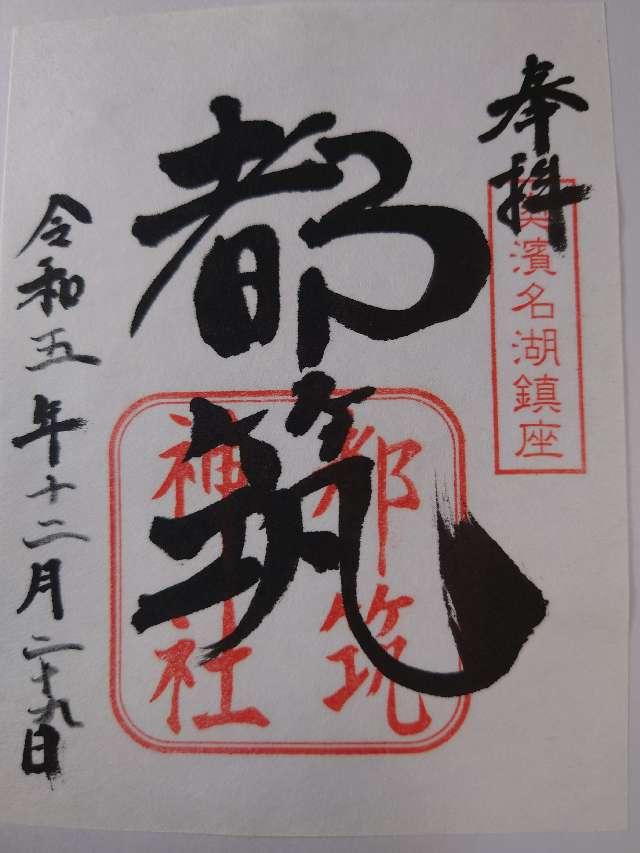 奉拝
奥濱名湖鎮座
都筑
都筑
神社
令和五年十二月二十九日